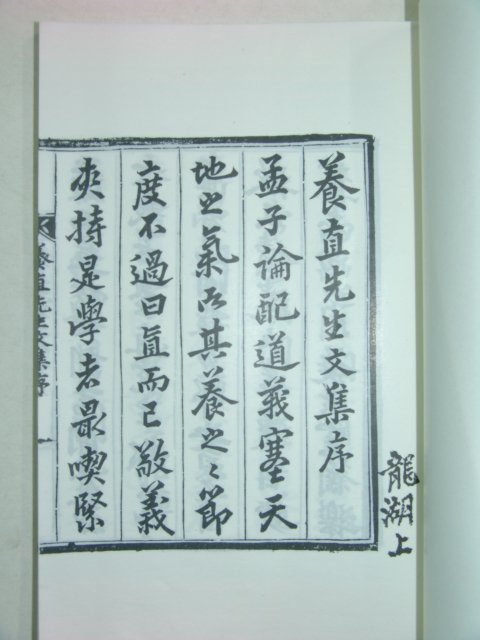 龍湖上
養直先生文集序
孟子論配道義塞天
地之氣以其養之之節
度不過曰直而已敬義
夾持是學者最喫緊
養直先生文集序 一